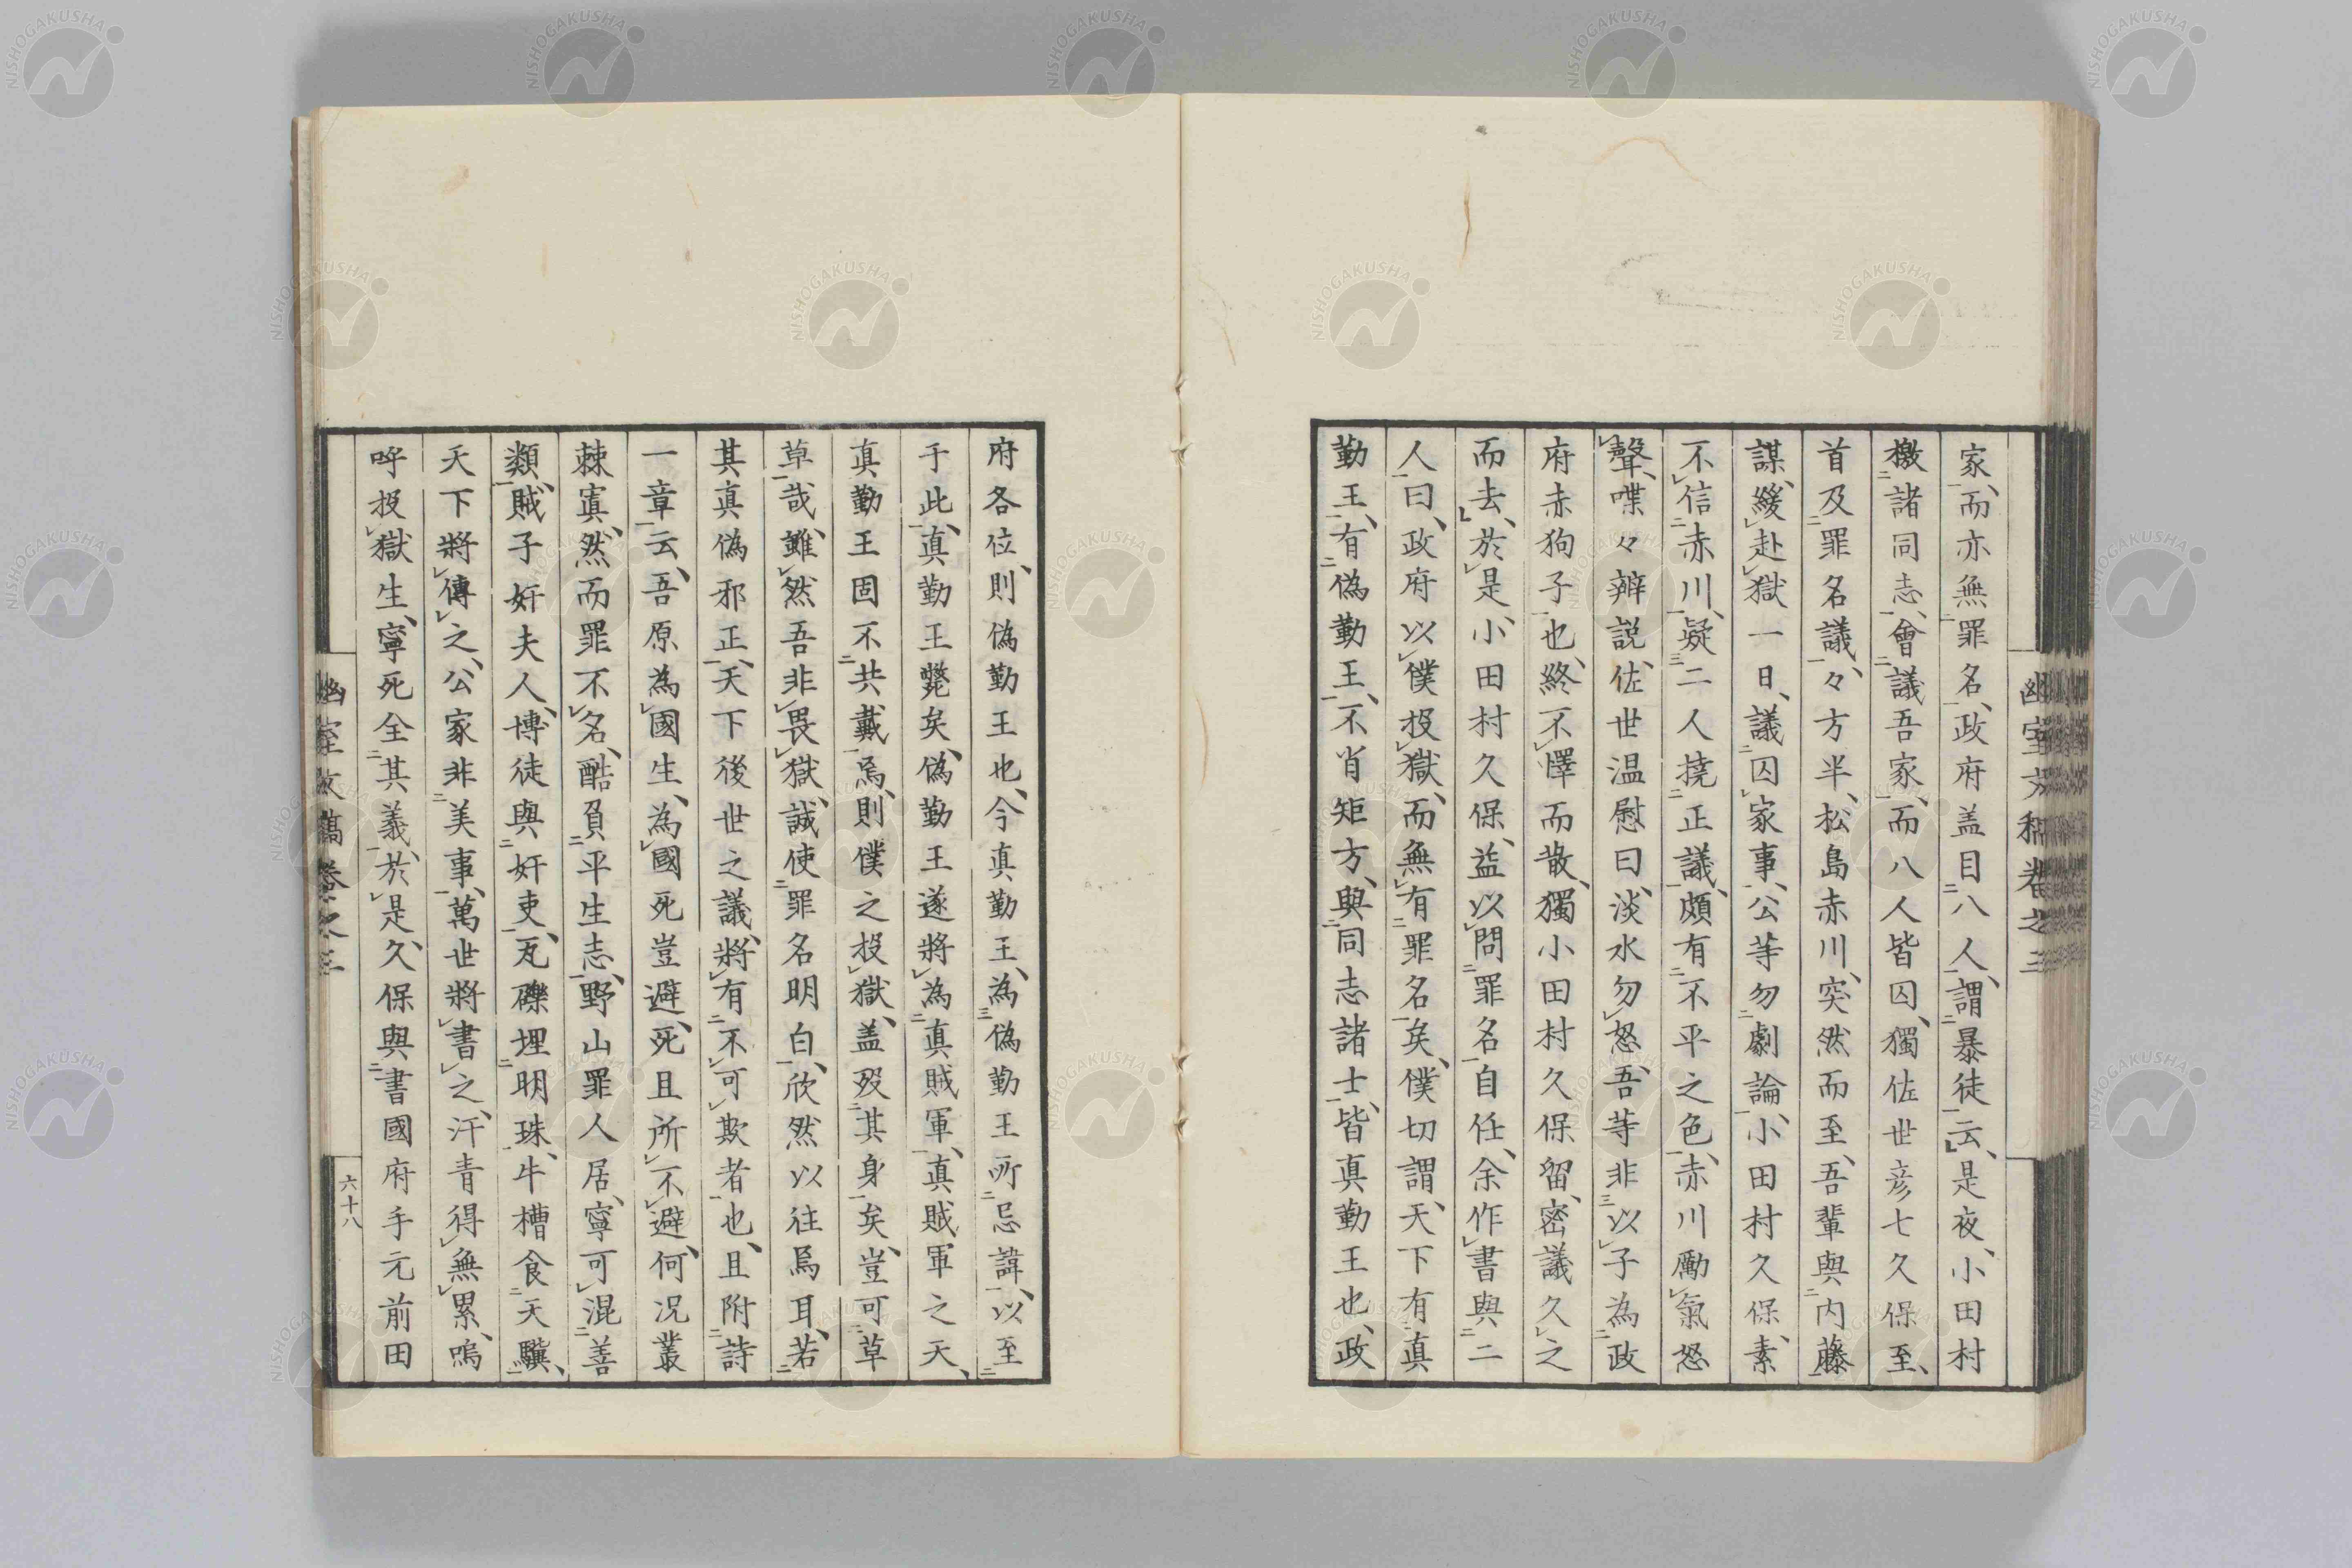 家、而亦無罪名、政府盖目八人、謂暴徒云、是夜、小田村
檄諸同志、會議吾家、而八人皆囚、獨佐世彦七久保至、
首及罪名議、々方半、松島赤川、突然而至、吾輩與内藤
謀、緩赴獄一日、議囚家事、公等勿劇論、小田村久保、素
不信赤川、疑二人撓正議、頗有不平之色、赤川勵氣怒
聲、喋々辨説、佐世温慰曰、淡水勿怒、吾等非以子為政
府赤狗子也、終不懌而散、獨小田村久保留、密議久之
而去、於是、小田村久保、益以問罪名自任、余作書與二
人曰、政府以僕投獄、而無有罪名矣、僕切謂、天下有真
勤王、有偽勤王、不肖矩方、與同志諸士、皆真勤王也、政
府各位、則偽勤王也、今真勤王、為偽勤王所忌諱、以至
于此、真勤王斃矣、偽勤王遂將為真賊軍、真賊軍之天、
真勤王固不共戴焉、則僕之投獄、盖歿其身矣、豈可草
草哉、雖然吾非畏獄、誠使罪名明白、欣然以往焉耳、若
其真偽邪正、天下後世之議、將有不可欺者也、且附詩
一章云、吾原為國生、為國死豈避、死且所不避、何況叢
棘寘、然而罪不名、酷負平生志、野山罪人居、寧可混善
類、賊子奸夫人、博徒與奸吏、瓦礫埋明珠、牛槽食天驥、
天下將傳之、公家非美事、萬世將書之、汗青得無累、嗚
呼投獄生、寧死全其義、於是、久保與書國府手元前田
幽室文稿卷之三
六十八